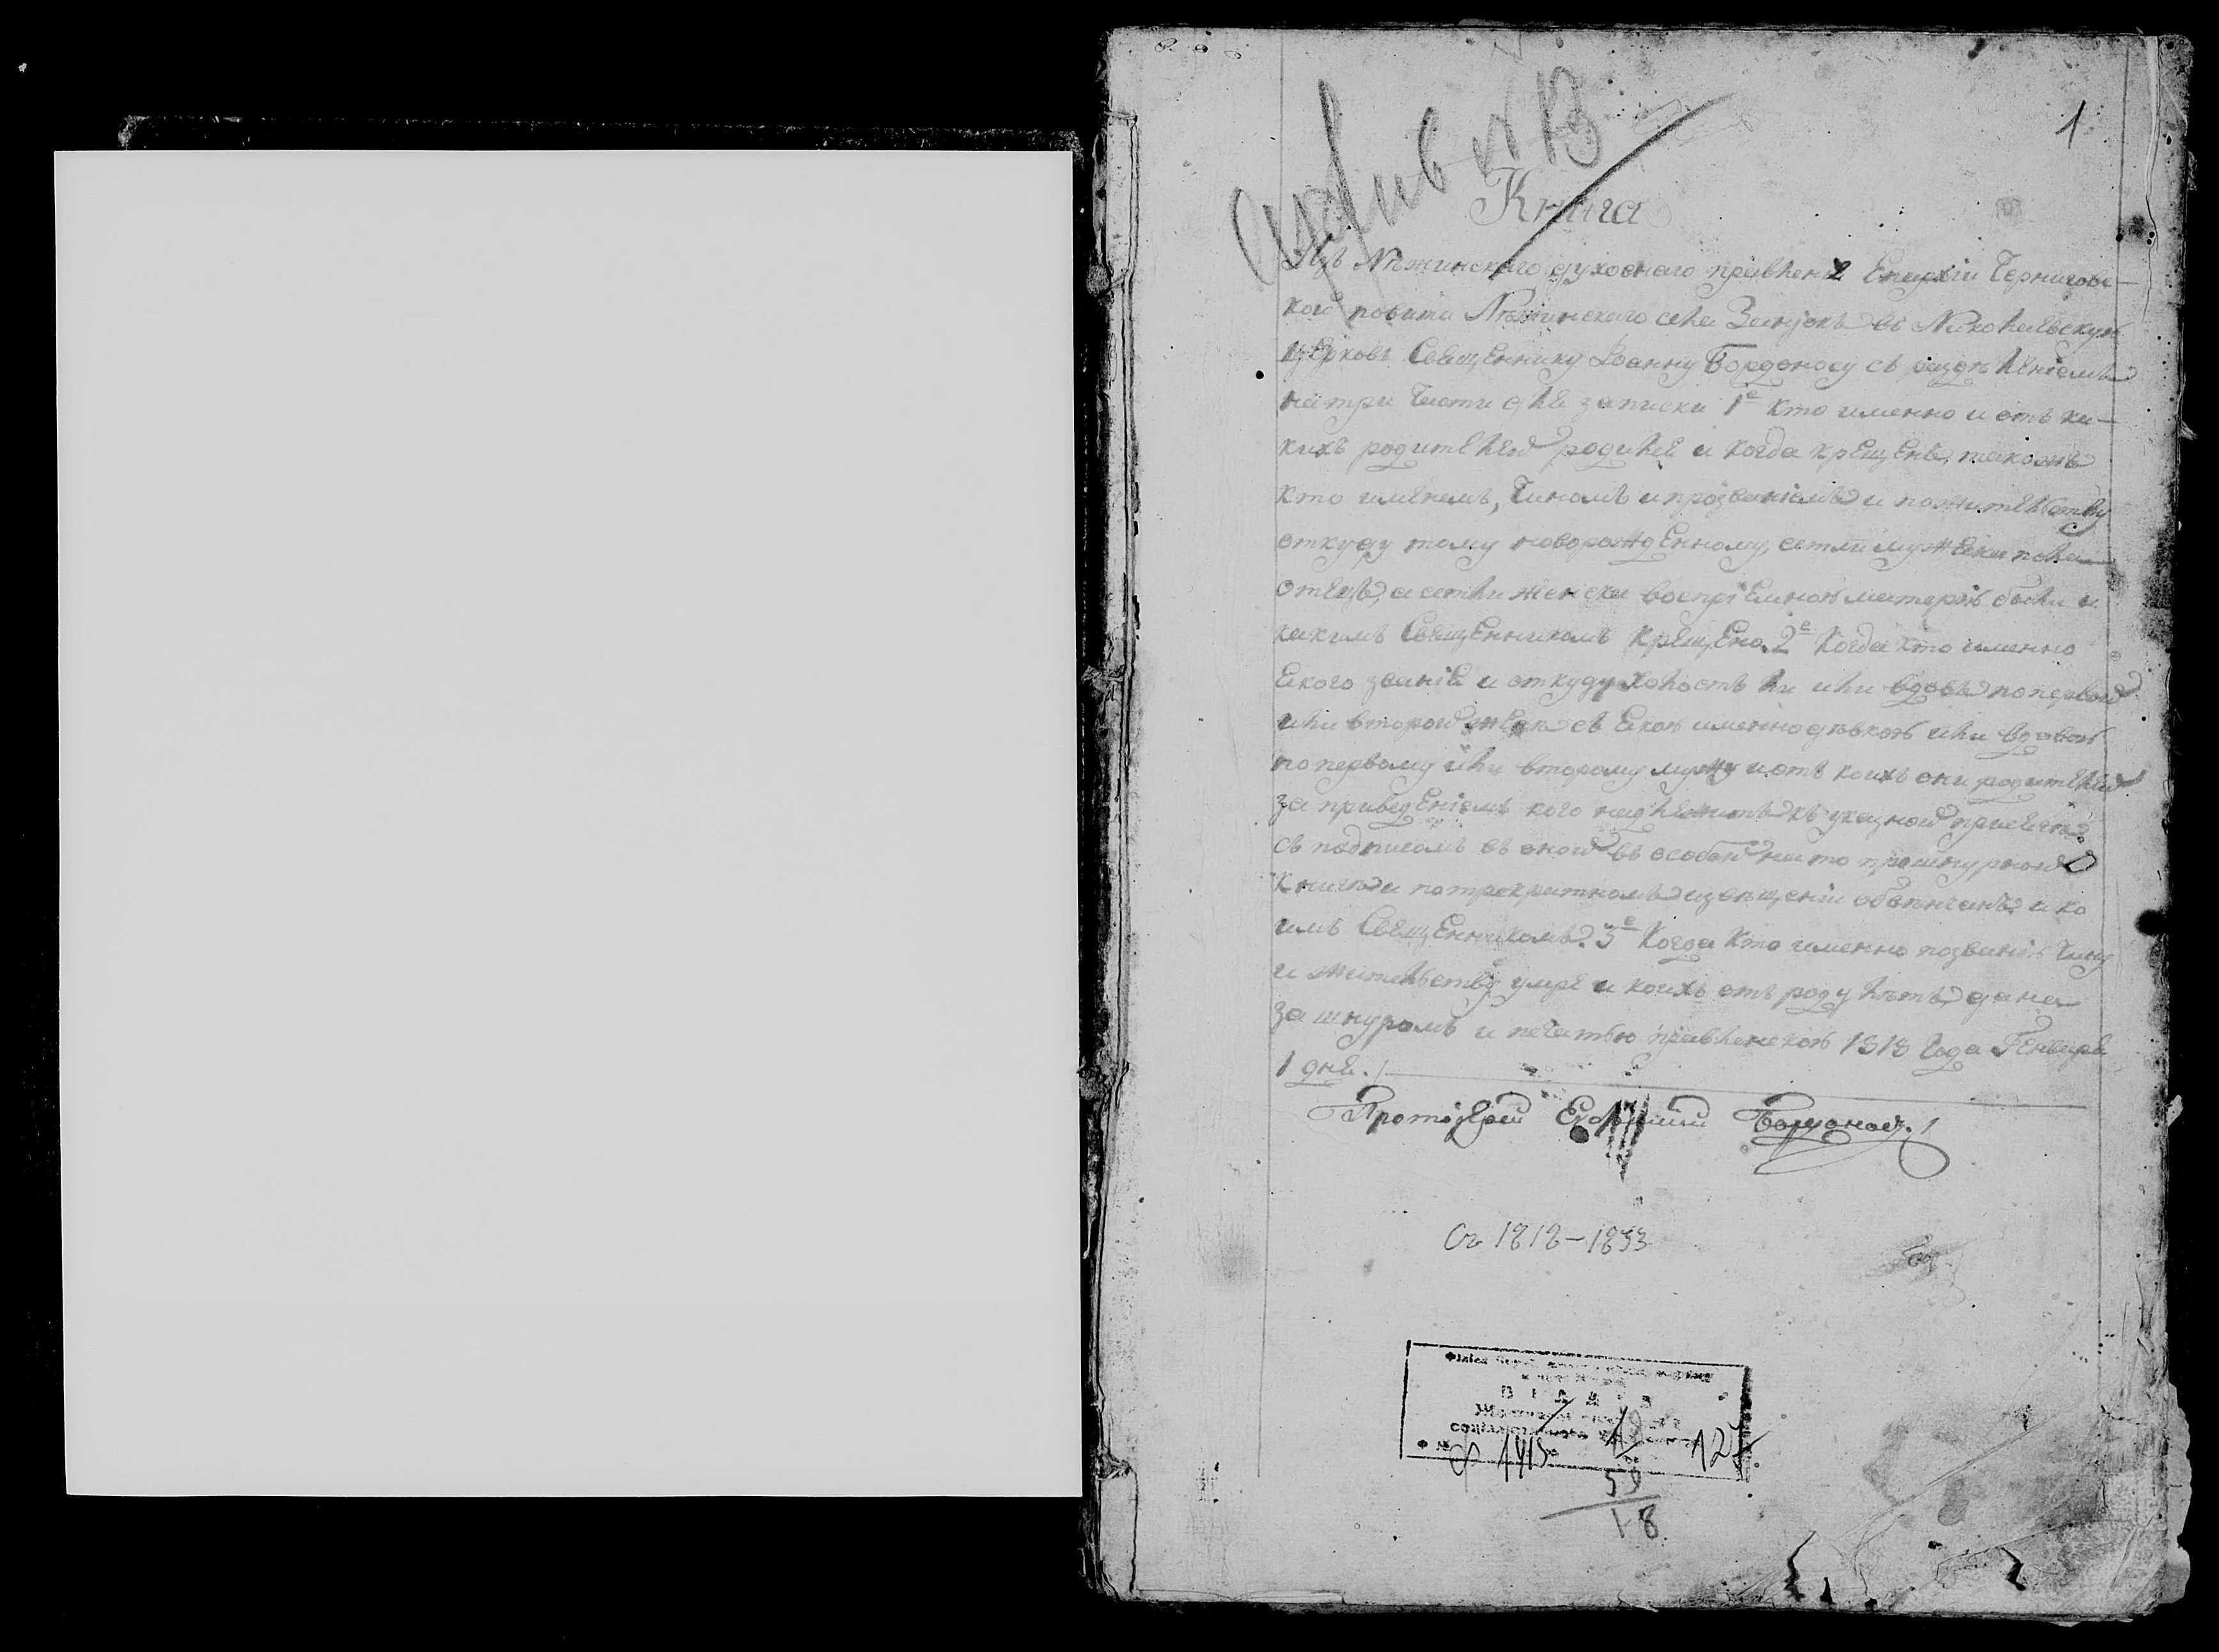 1
Архив N 13
Книга
Изъ Нѣжинскаго духовнаго правленія Епархіи Черниговс-
кой повѣта Нѣжинскаго села въ Николаевскую
церковь Священнику Іоанну Бордоносу съ раздѣленіемъ
на три части для записки 1е кто именно и отъ ка-
кихъ родителей родился и когда крещенъ, такожъ
кто именемъ, чиномъ и прозваніемъ и по жителству
откуду тому новорожденному, естли мужеска пола
отецъ, а естли женска воспріемною матерію были и
какимъ Священникомъ крещено. 2е Когда кто именно
якого званія и откуду холостъ ли или вдовъ по первой
или второй женѣ съ якою именно дѣвкою или вдовою
по первому или второму мужу и отъ коихъ они родителей
за приведеніемъ кого надлежитъ къ указной присягѣ
съ подписомъ въ оной въ особой на то прошнурной
Книгѣ и по трекратномъ извѣщеніи обвѣнчанъ и ко
имъ Священникомъ. 3е Когда кто именно по званію чину
и жителству умре и коихъ отъ роду лѣтъ, дана
за шнуромъ и печатью правленскою 1818 года Генваря
1 дня.
Протоіерей Бордоносъ
Съ 1818-1833
ф 1415 127
59
18